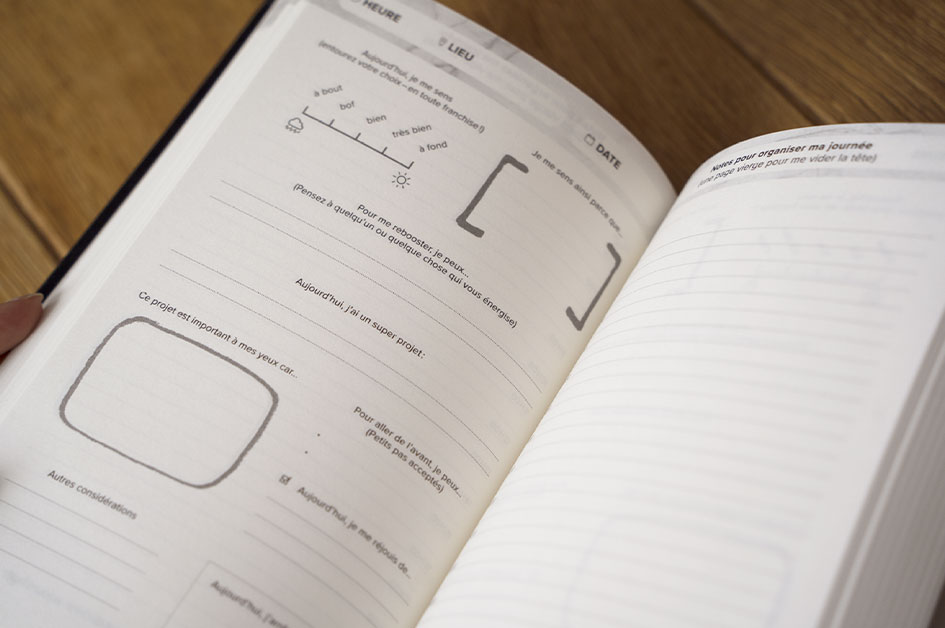 HEURE
LIEU
DATE
Aujourd'hui, je me sens
(entourez votre choix – en toute franchise !)
à bout
bof
bien
très bien
à fond
Je me sens ainsi parce que...
Pour me rebooster, je peux...
(Pensez à quelqu'un ou quelque chose qui vous énergise)
Aujourd'hui, j'ai un super projet :
Ce projet est important à mes yeux car...
Pour aller de l'avant, je peux...
(Petits pas acceptés)
Autres considérations
Aujourd'hui, je me réjouis de...
Aujourd'hui,
Notes pour organiser ma journée
(une page vierge pour me vider la tête)